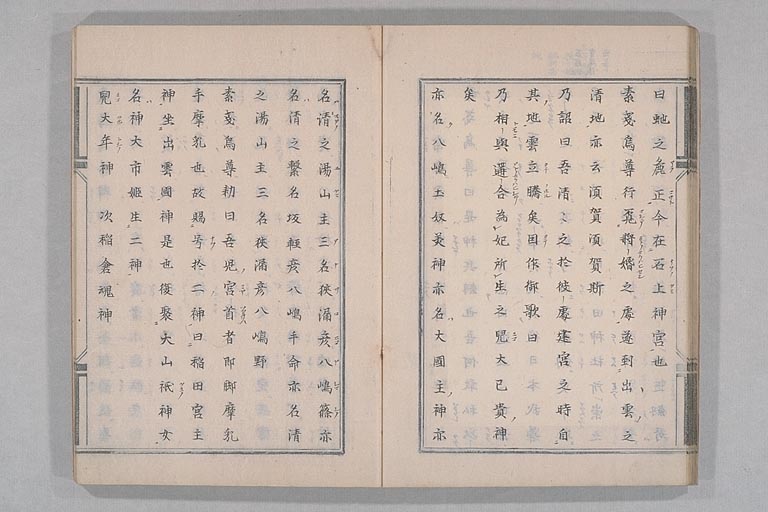 曰虵之麁正今在石上神宮也
素戔嗚尊行覓將婚之處遂到出雲之
清地亦云須賀須賀斯
乃詔曰吾清々之於彼處建宮之時自
其地雲立騰矣因作御歌曰
乃相與遘合為妃所生之兒大己貴神
矣
亦名八嶋玉奴美神亦名大國主神亦
名清之湯山主三名狹漏彦八嶋篠亦
名清之繋名坂輕彦八嶋手命亦名清
之湯山主三名狹漏彦八嶋野
素戔嗚尊勅曰吾兒宮首者即脚摩乳
手摩乳也故賜号於二神曰稲田宮主
神坐出雲國神是也後娶大山祇神女
名神大市姫生二神
兒大年神次稲倉魂神